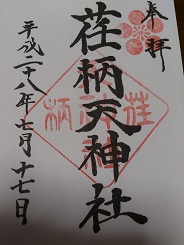 奉拝
荏柄天神社
平成二十八年七月十七日